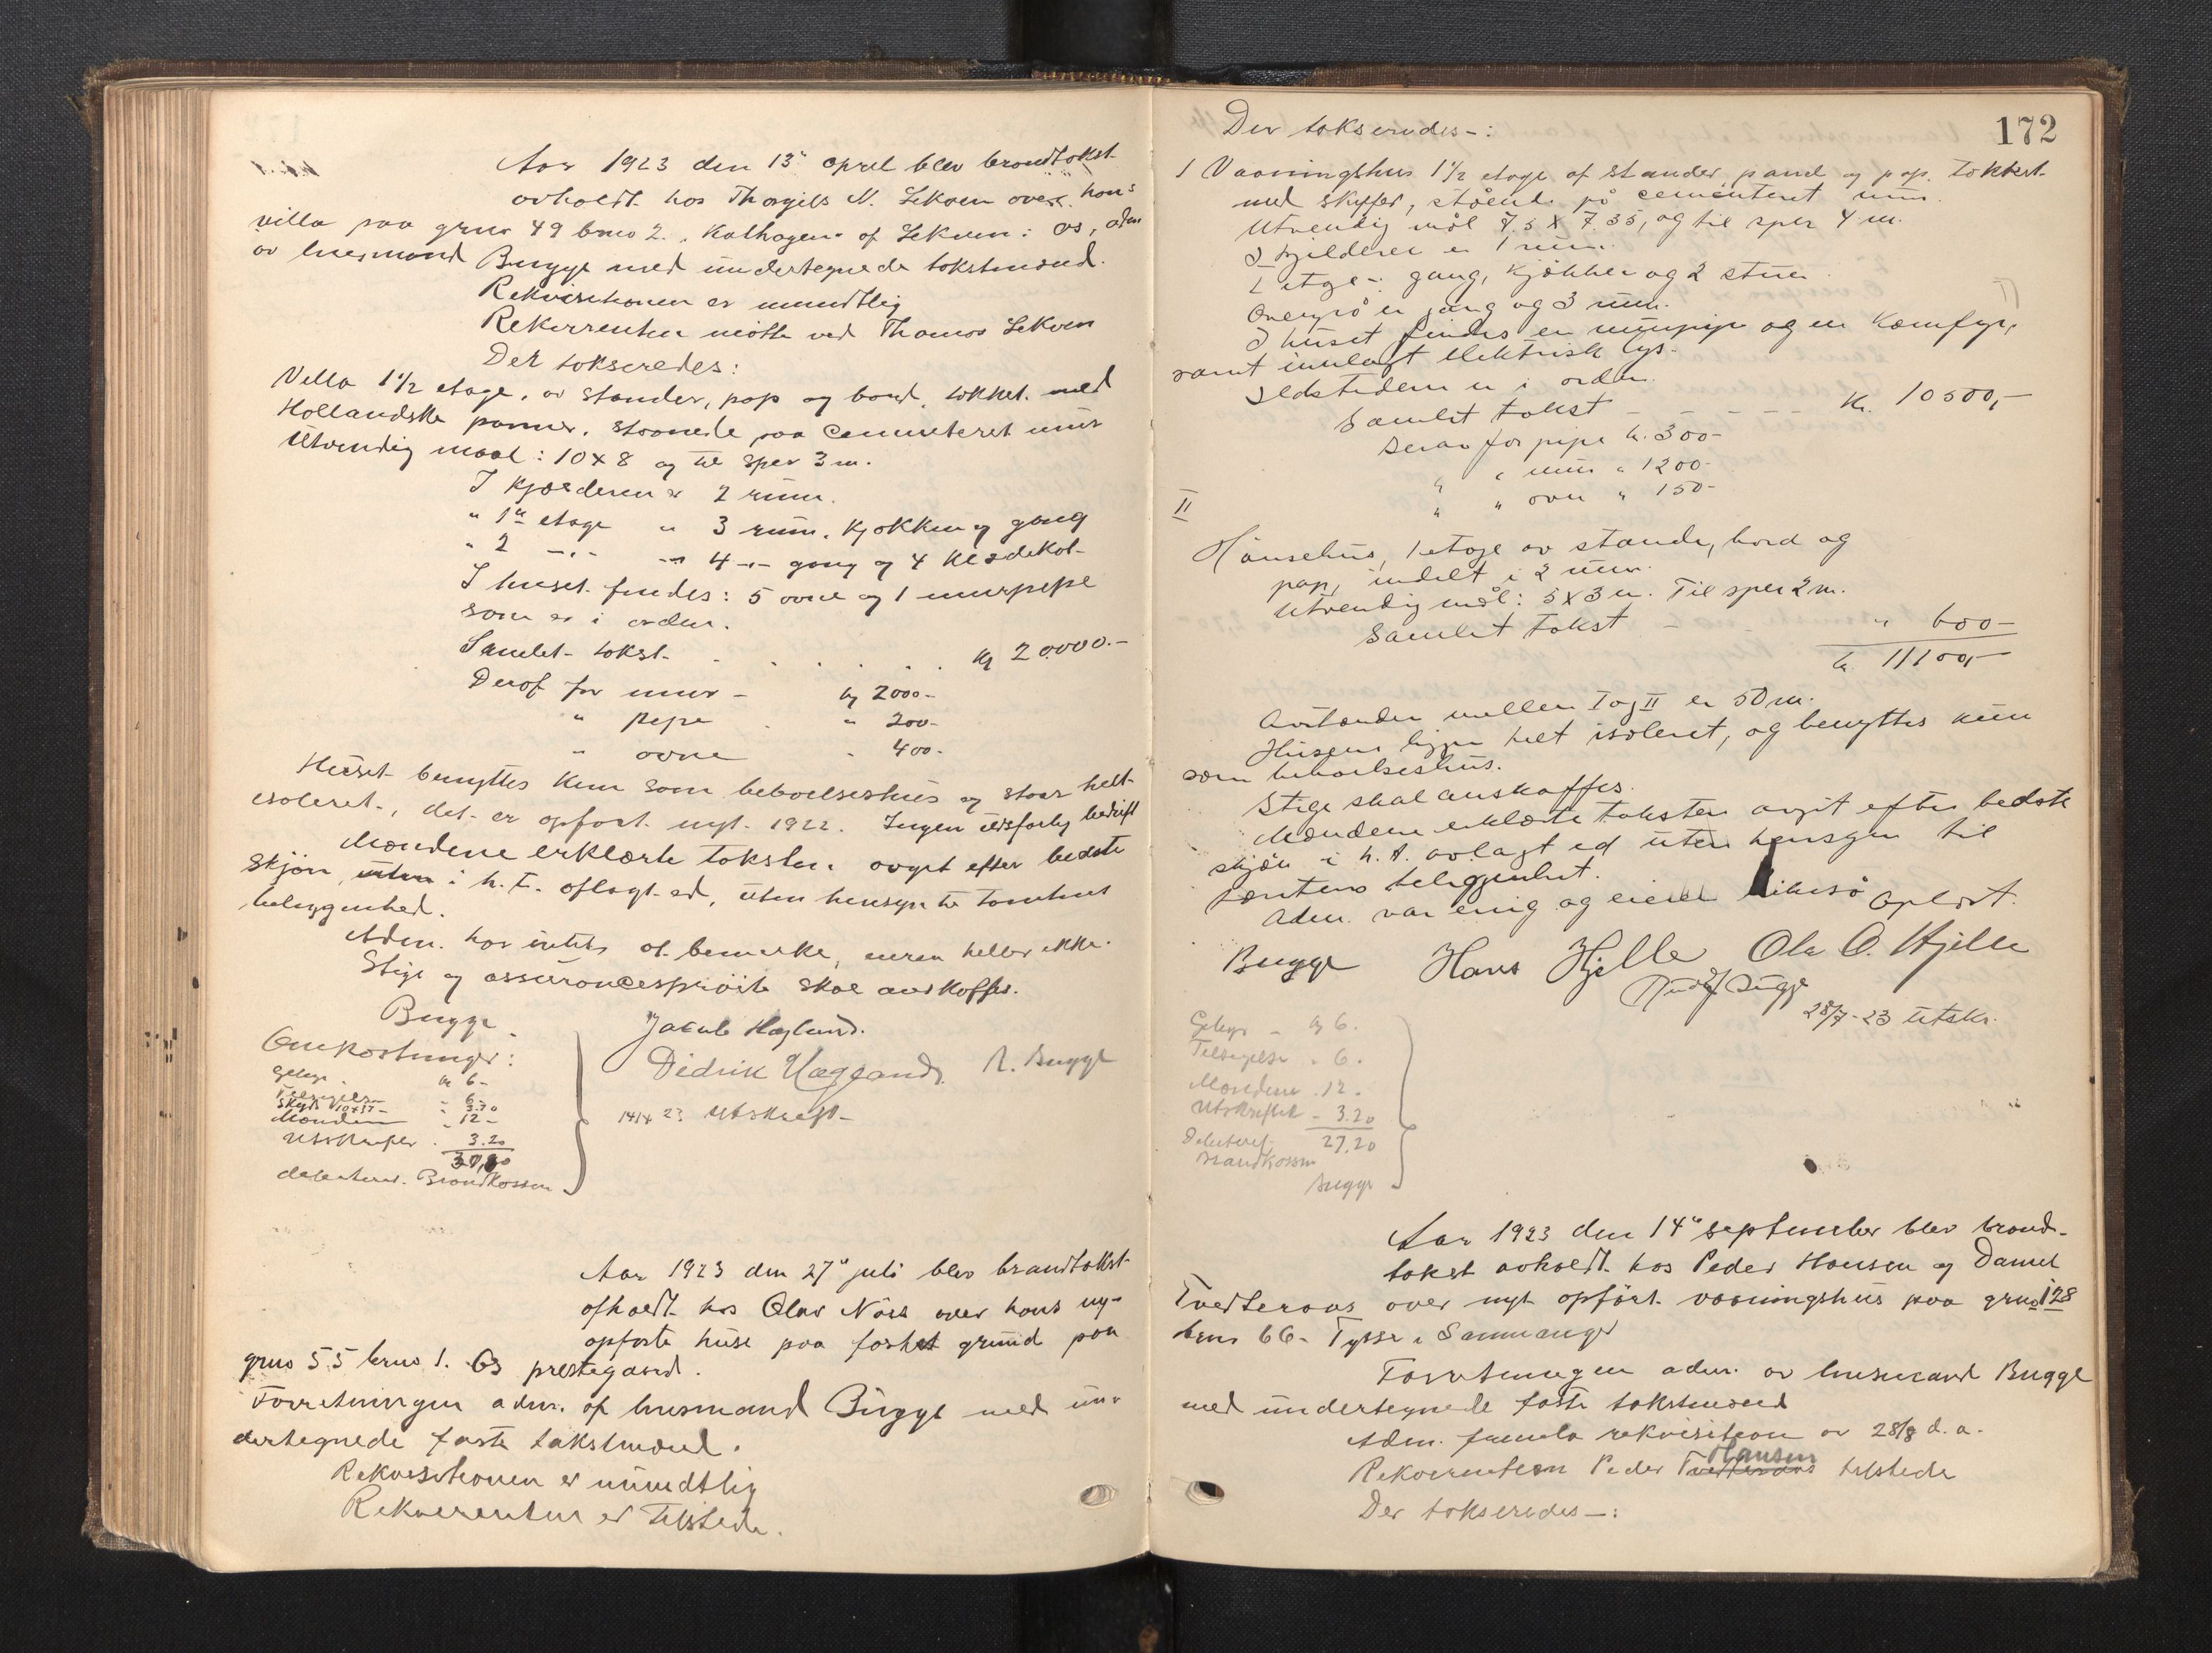 Aar 1923 den 13de april blev brandtakst
avholdt hos Thorgils N. Lekven over hans
villa paa grno 49 brno 2. Kalhagen af Lekven i Os, adm
av lensmand Bugge med undertegnede takstmænd.
Rekvisitionen er mundtlig
Rekvirenten møtte ved Thomas Lekven
Det takseredes:
Villa 1 1/2 etage, av stander, pap og bord, tækket med
Hollandske panner, staaende paa cementeret mur
Utvendig maal: 10 x 8 og til sper 3 m.
I kjælderen er 2 rum.
" 1ste etage " 3 rum, kjøkken og gang
" 2 -"- -"- 4 -"- gang og 4 klædekot-
I huset findes: 5 ovne og 1 murpipe
som er i orden.
Samlet takst . . . . . . kr 20000.-
Deraf for mur - kr 2000-
" pipe . " 200-
" ovne - 400-
Huset benyttes kun som beboelseshus og staar helt
isoleret, det er opført nyt 1922. Ingen ildsfarlig bedrift
Mændene erklærte taksten avgit efter bedste
skjøn, uten i h.t. aflagt ed, uten hensyn til tomtens
beliggenhed.
Adm. har intet at bemerke, eieren heller ikke.
Stige og assurancesprøite skal anskaffes.
Bugge.
Jakob Hægland.
Didrik Hægland. R. Bugge
Omkostninger:
Gebyr . kr 6-
Tilsigelse - 6-
Skyds 10x37- " 3.70
Mændene - 12-
Utskrifter . 3.20
debiteres Brandkassen
14/4 23 Utskrift-
Aar 1923 den 27de juli blev brandtakst
afholdt hos Olav Nåss over hans ny-
opførte huse paa festet grund paa
grno 55 brno 1. Os prestegaard.
Forretningen adm. af lensmand Bugge med un-
dertegnede faste takstmænd.
Rekvisitionen er mundtlig
Rekvirenten er tilstede.
172
Der takseredes-:
I Vaaningshus 1 1/2 etage af stander panel og pap. tækket
med skifer, stående på cementeret mur.
Utvendig mål 7.5 x 7.35, og til sper 4 m.
I kjælderen er 1 rum.
1 etge -: gang, kjøkken og 2 stuer
Ovenpå er gang og 3 rum.
I huset findes en murpipe og en komfyr,
samt innlagt elektrisk lys.
Ildstedene er i orden.
Samlet takst - - - - - kr. 10500,-
Derav for pipe kr. 300-
" " mur " 1200-
" " ovn " 150-
II
Hønsehus, 1 etage av stander, bord og
pap, indelt i 2 rum.
Utvendig mål: 5 x 3 m. Til sper 2 m.
Samlet takst - " 600-
kr. 11100,-
Avstanden mellem I og II er 50 m.
Husene ligger helt isoleret, og benyttes kun
som beboelseshus.
Stige skal anskaffes.
Mændene erklærte taksten avgit efter bedste
skjøn i h.t. avlagt ed uten hensyn til
tomtens beliggenhet.
Adm. var enig og eieren likeså Oplæst.
Bugge Hans Hjelle Ole O. Hjelle
Rudolf Bugge
28/7-23 Utskr.
Gebyr - kr 6.
Tilsigelse " 6.
Mændene . 12 -
Utskriften - 3.20
27,20
Debiteret
Brandkassen
Bugge
Aar 1923 den 14de september blev brand-
takst avholdt hos Peder Hansen og Daniel
Tvedteraas over nyt opført vaaningshus paa grno 128
brno 66- Tysse i Samnanger
Forretningen adm. av lensmand Bugge
med undertegnede faste takstmænd
Adm. fremla rekvisition av 28/8 d.a.
Hansen
Rekvirenten Peder Tvedteraas tilstede
Der takseredes-: